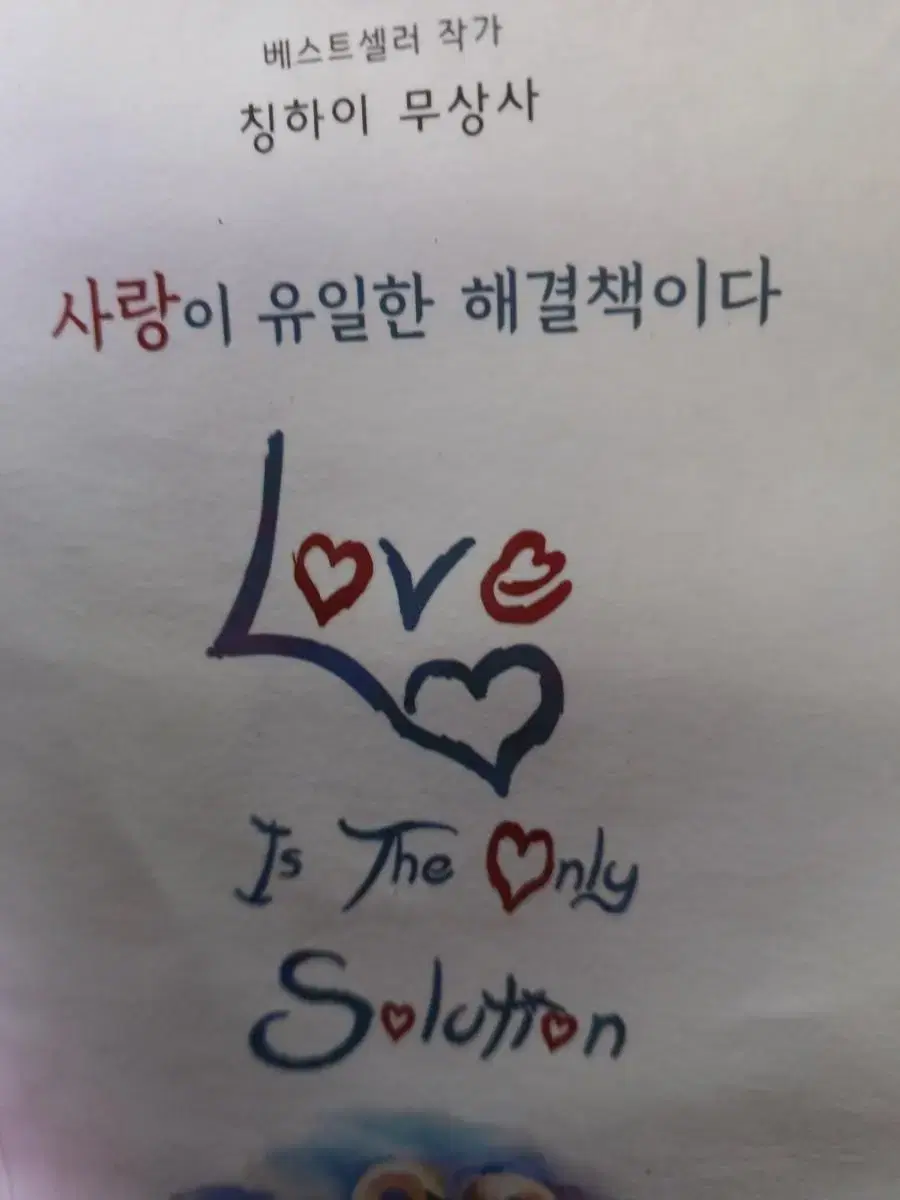 베스트셀러 작가
칭하이 무상사
사랑이 유일한 해결책이다
Love
Is The Only
Solution